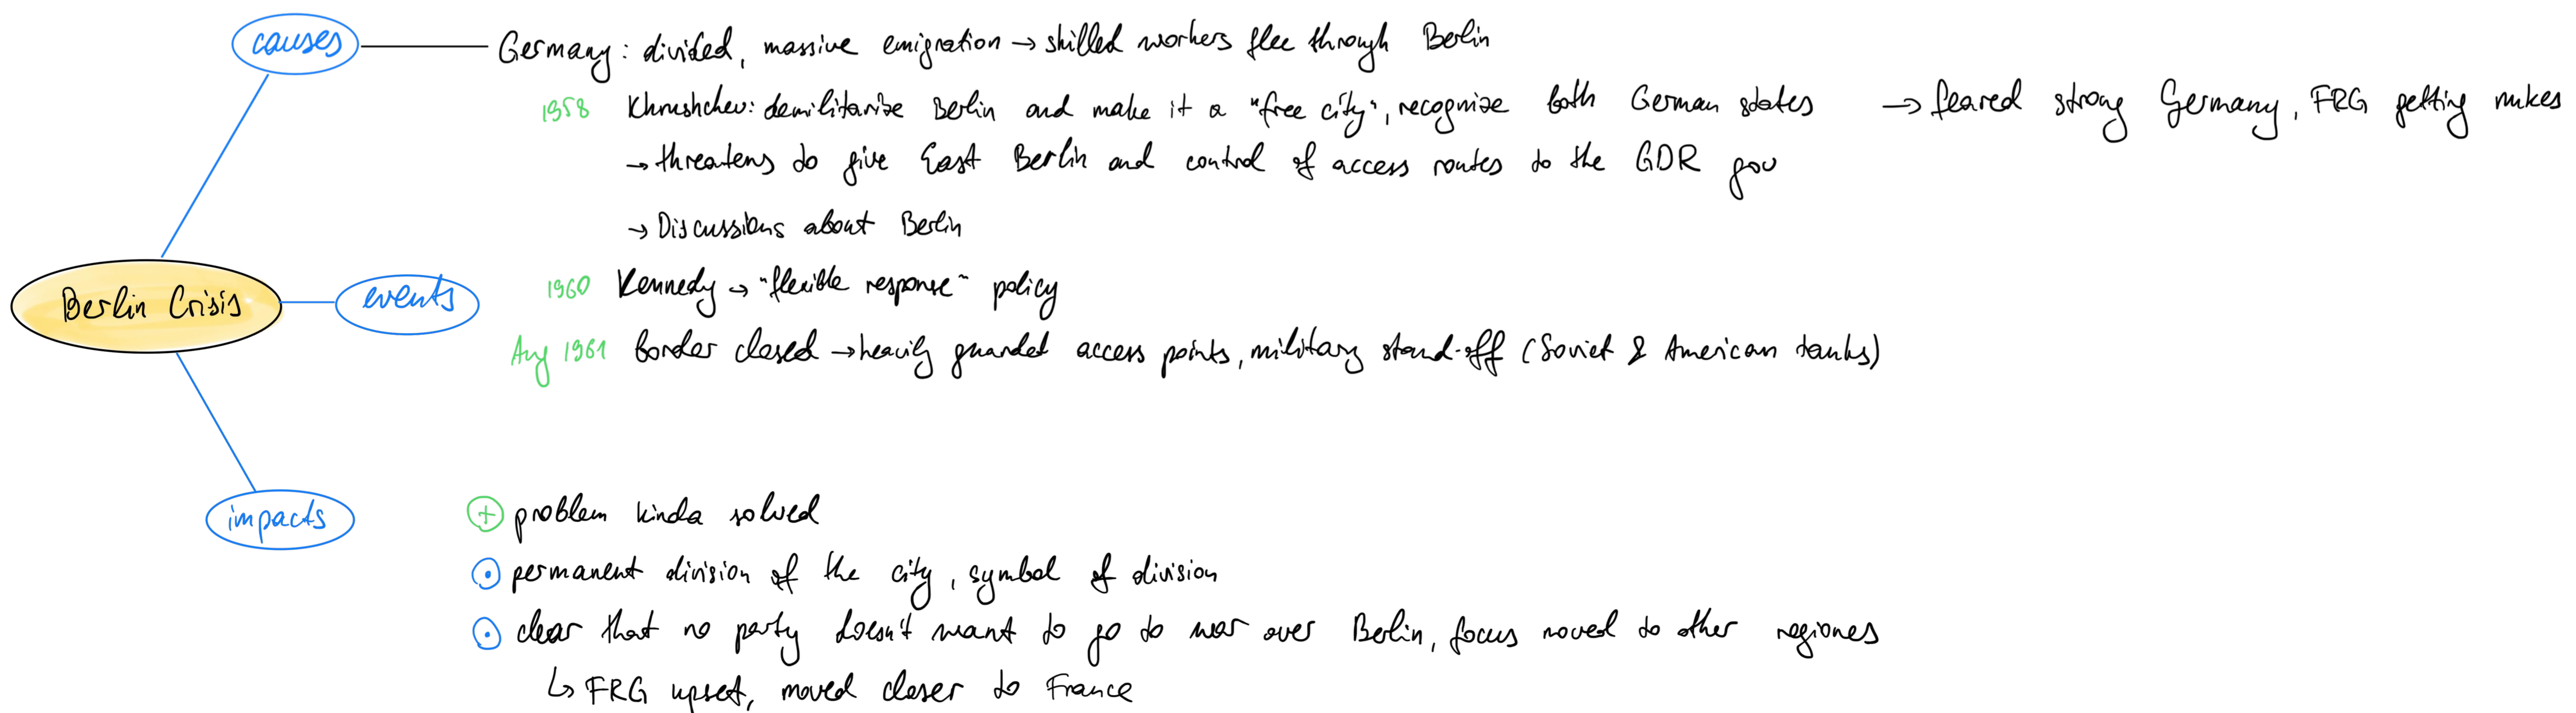 causes
Germany: divided, massive emigration → skilled workers flee through Berlin
1958 Khrushchev: demilitarize Berlin and make it a "free city", recognize both German states → feared strong Germany, FRG getting nukes
→ threatens to give East Berlin and control of access routes to the GDR gov
→ Discussions about Berlin
Berlin Crisis
events
1960 Kennedy → "flexible response" policy
Aug 1961 border closed → heavily guarded access points, military stand-off (Soviet & American tanks)
impacts
+ problem kinda solved
• permanent division of the city, symbol of division
• clear that no party doesn't want to go to war over Berlin, focus moved to other regiones
↳ FRG upset, moved closer to France